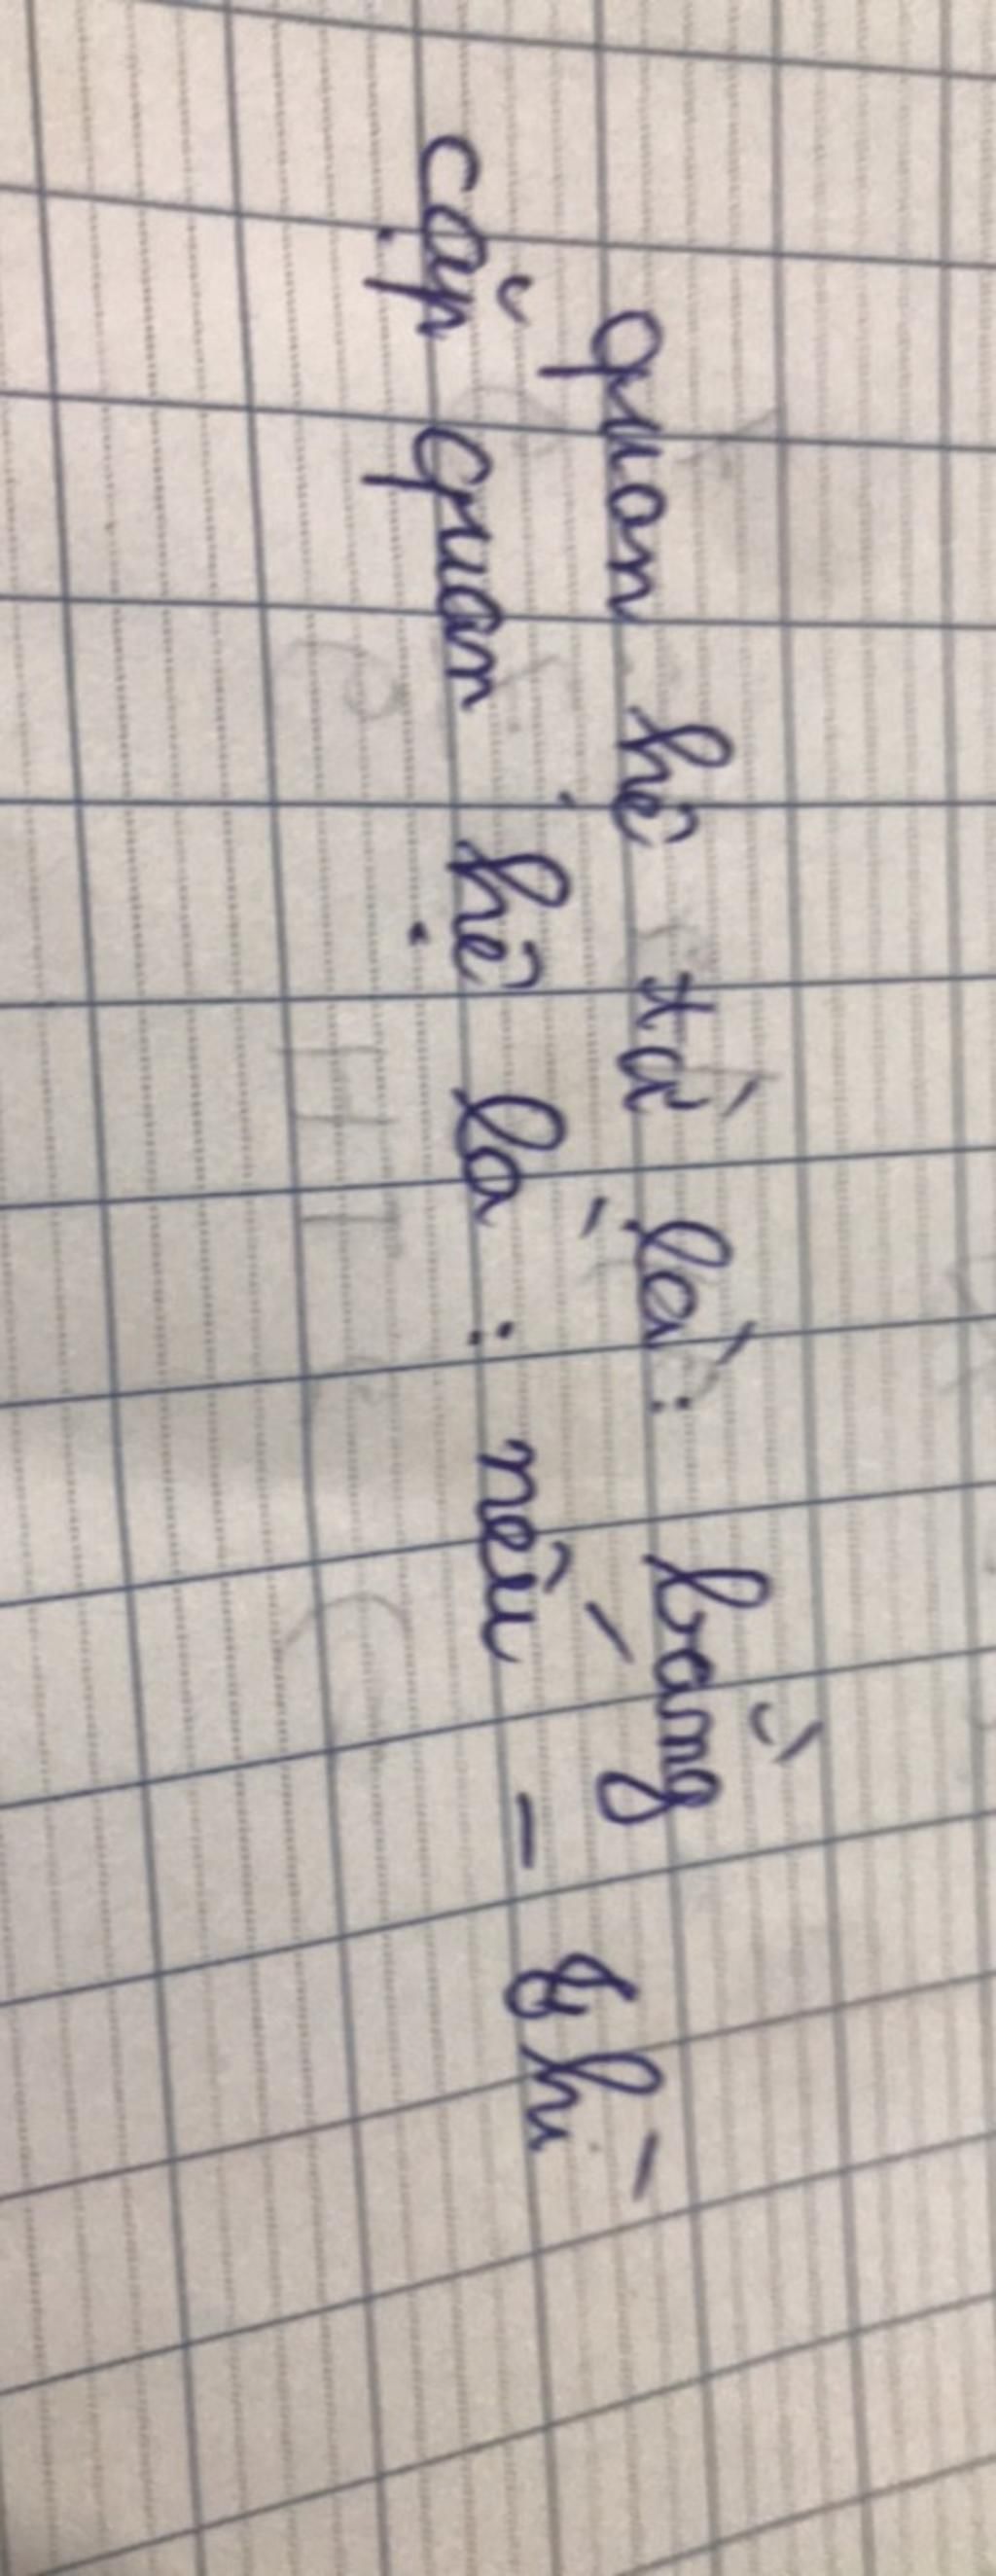 quan hệ từ là: bằng
cặp quan hệ là: nếu - thì